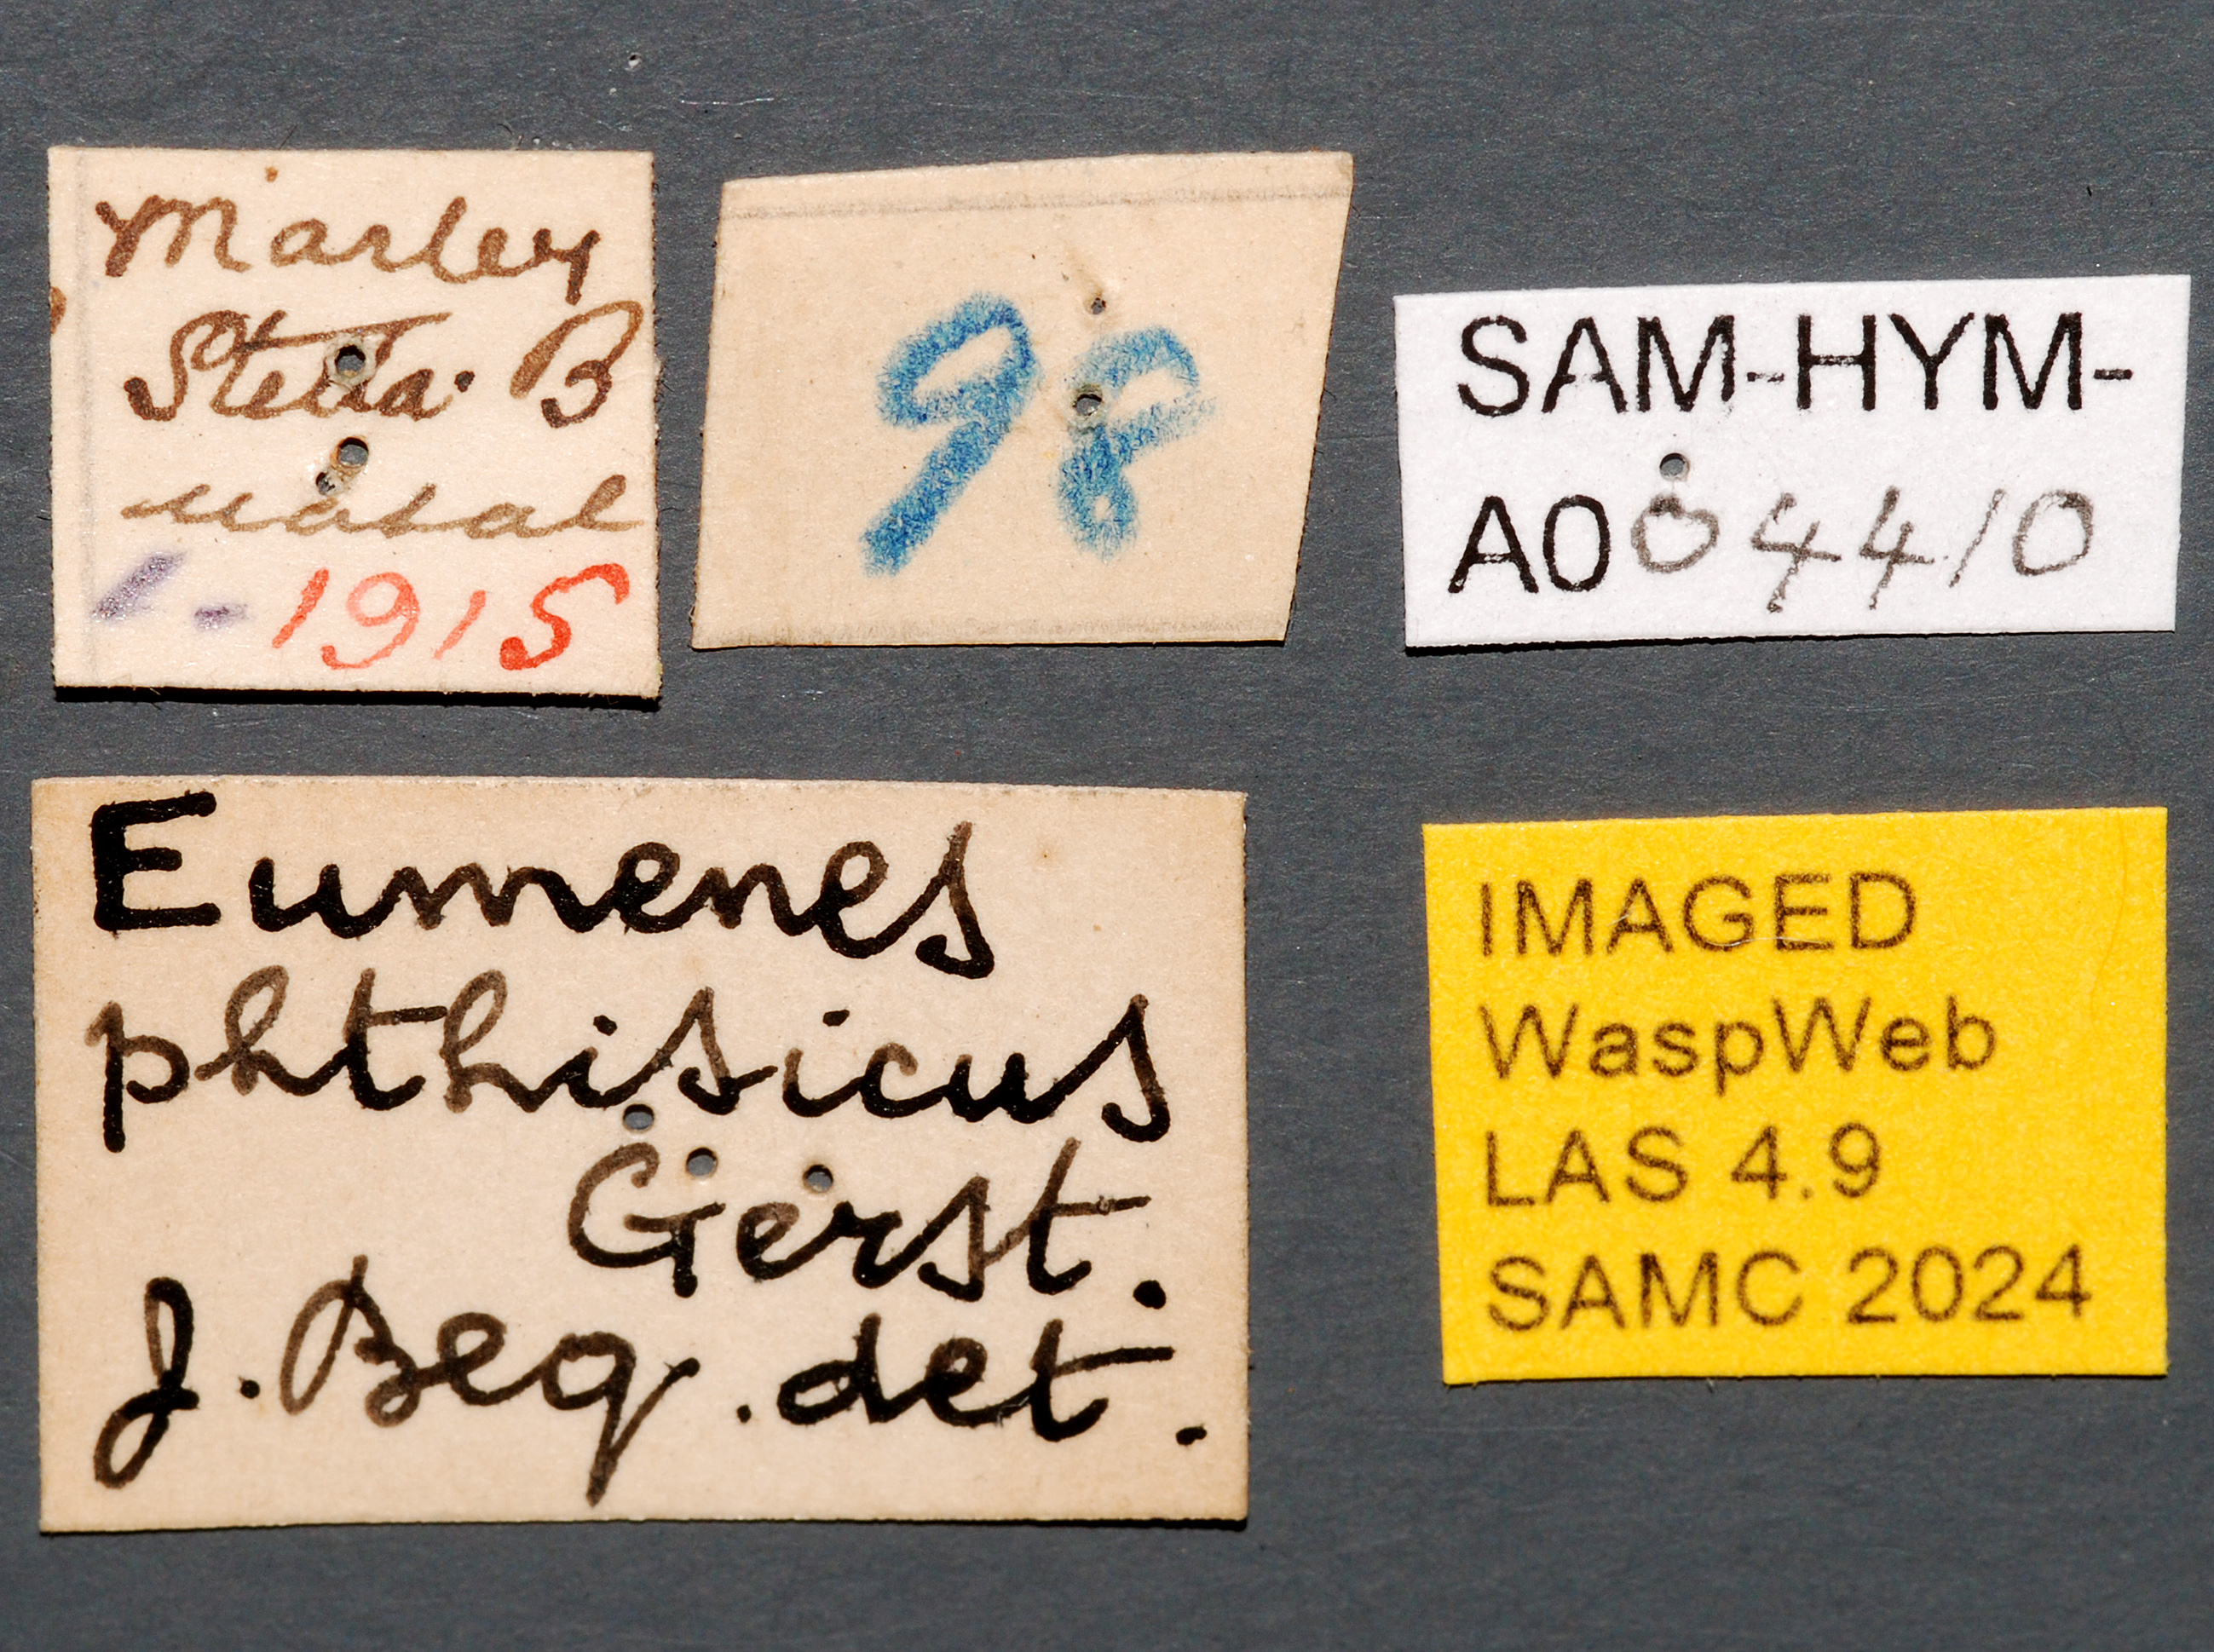 Marley
Stella B
Natal
1-1915
98
SAM-HYM-
A004410
Eumenes
phthisicus
Gerst.
J. Beq. det.
IMAGED
WaspWeb
LAS 4.9
SAMC 2024